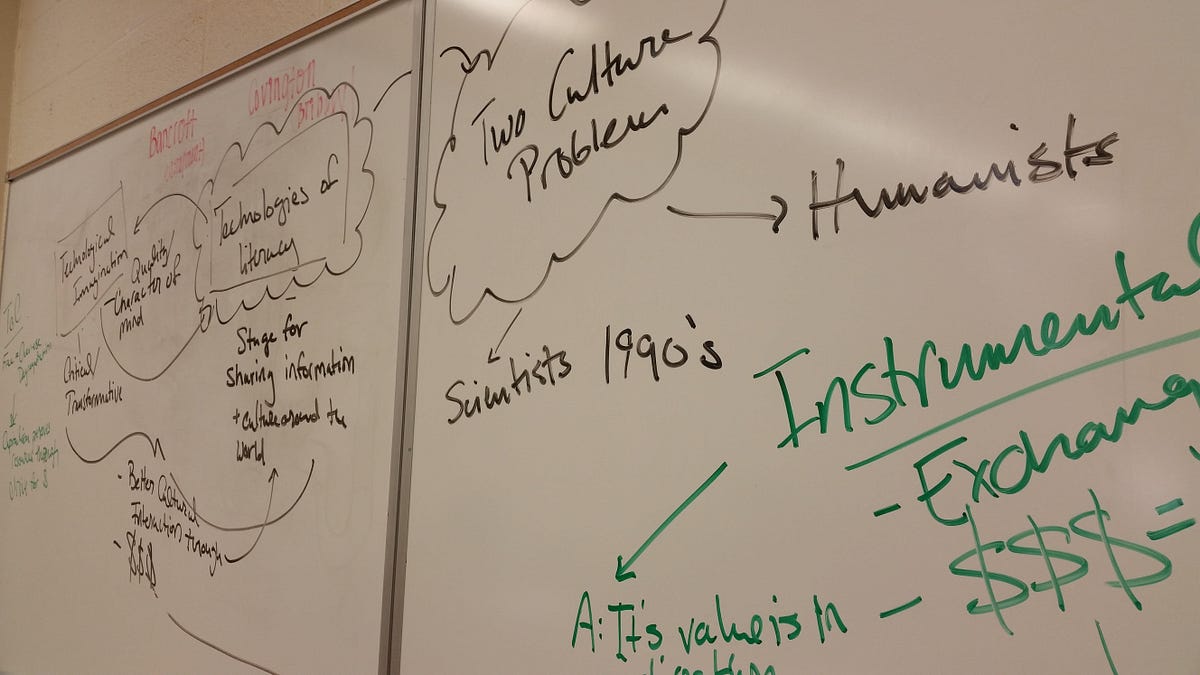 Bancroft
Covington
Technologies of
literacy
Technological
Imagination
Quality/
Character of
mind
Critical/
Transformative
Stage for
sharing information
+ culture around the
world
- Better Cultural
Interaction through
- $$$
Two Culture
Problem
Humanists
Scientists 1990's
Instrumental
- Exchang
- $$$ =
A: It's value is in